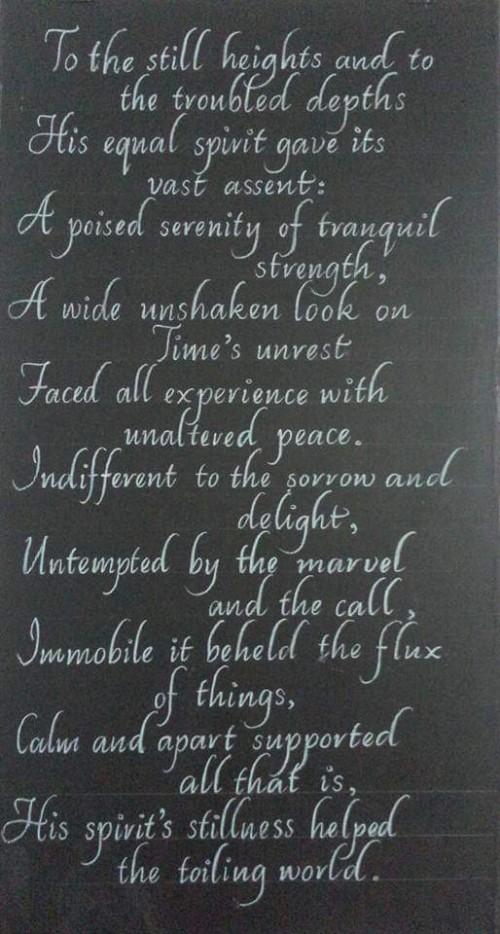 To the still heights and to
the troubled depths
His equal spirit gave its
vast assent:
A poised serenity of tranquil
strength,
A wide unshaken look on
Time's unrest
Faced all experience with
unaltered peace.
Indifferent to the sorrow and
delight,
Untempted by the marvel
and the call,
Immobile it beheld the flux
of things,
Calm and apart supported
all that is,
His spirit's stillness helped
the toiling world.